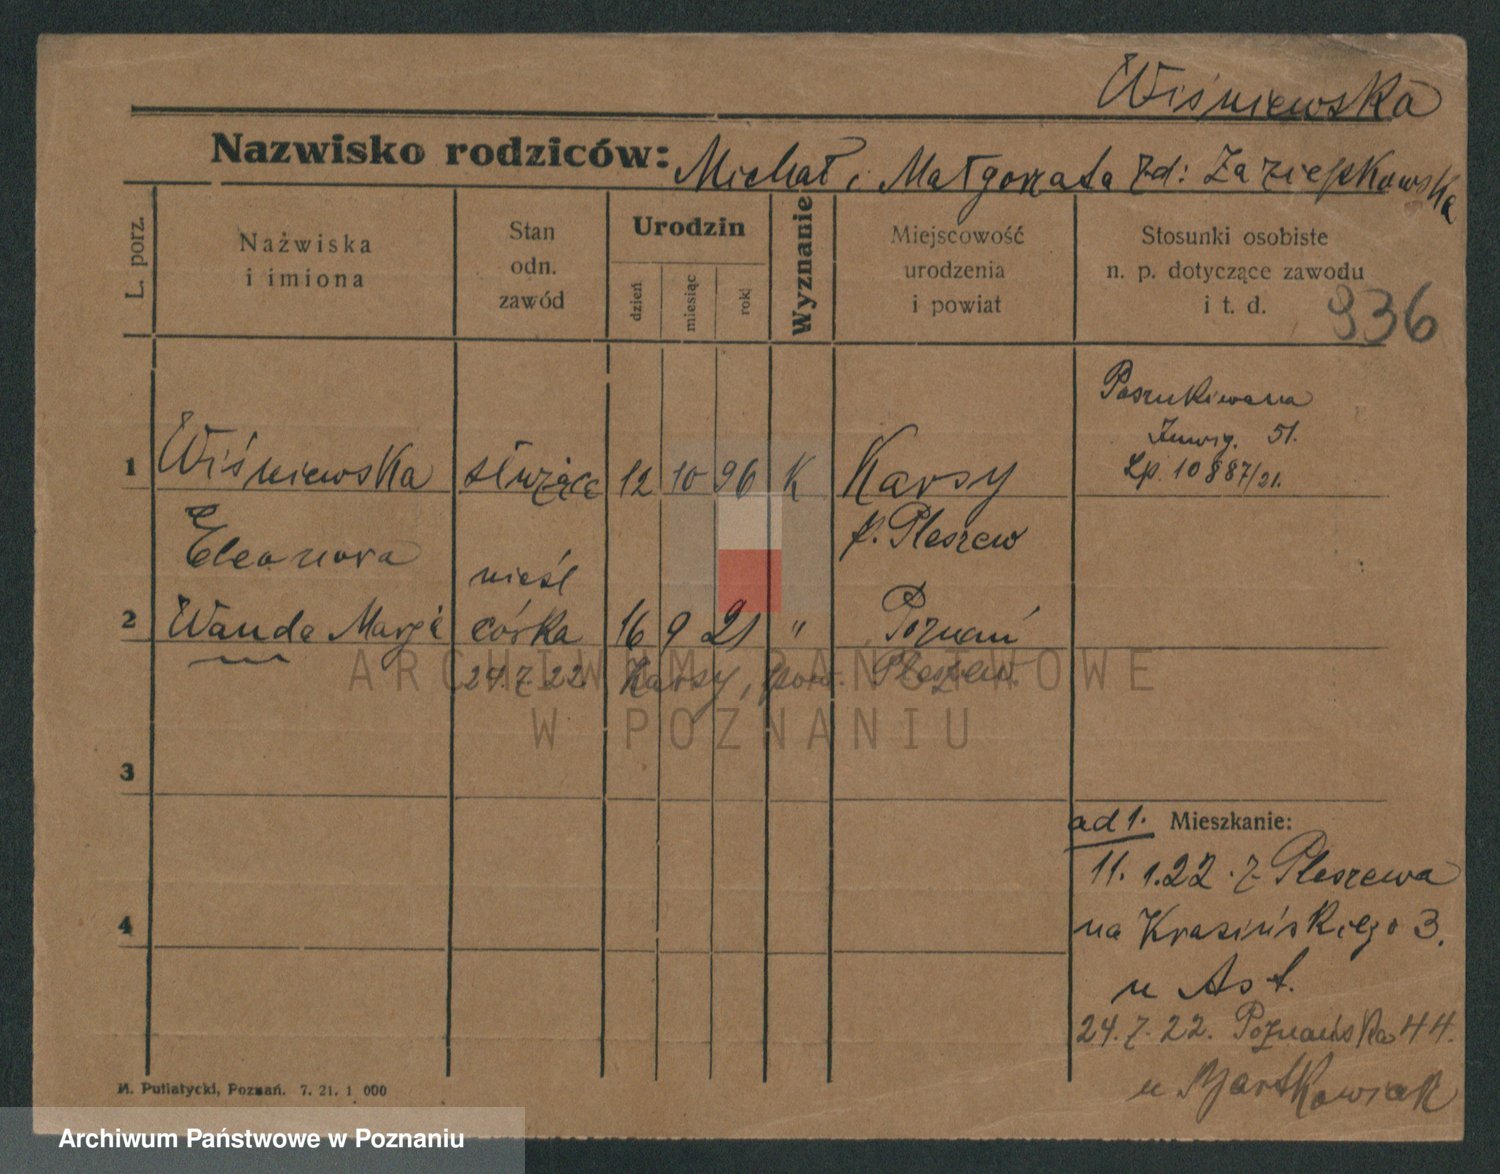 Wiśniewska
Nazwisko rodziców: Michał i Małgorzata zd:
L. porz.
Nażwiska
i imiona
Stan
odn.
zawód
Urodzin
dzień
miesiąc
rok
Wyznanie
Miejscowość
urodzenia
i powiat
Stosunki osobiste
n. p. dotyczące zawodu
i t. d.
936
Poszukiwana
51.
Lp. 10887/21.
1 Wiśniewska służąca 12 10 96 K Karsy
Eleonora p. Pleszew
nieśl
2 Wanda Marja córka 16 9 21 " Poznań
24.7.22. Karsy, pow. Pleszew.
3
4
ad 1. Mieszkanie:
11. 1.22. z Pleszewa
na Krasińskiego 3.
u Ast.
24.7.22. Poznańska 44.
u Bartkowiak
M. Putiatycki, Poznań. 7. 21. 1 000
ARCHIWUM PAŃSTWOWE
W POZNANIU
Archiwum Państwowe w Poznaniu